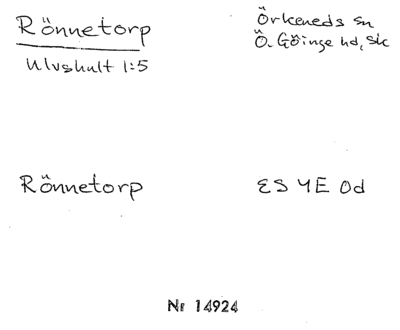 Rönnetorp
Ulvshult 1:5
Örkeneds sn
Ö. Göinge hd, Sk
Rönnetorp
ES 4E 0d
Nr 14924